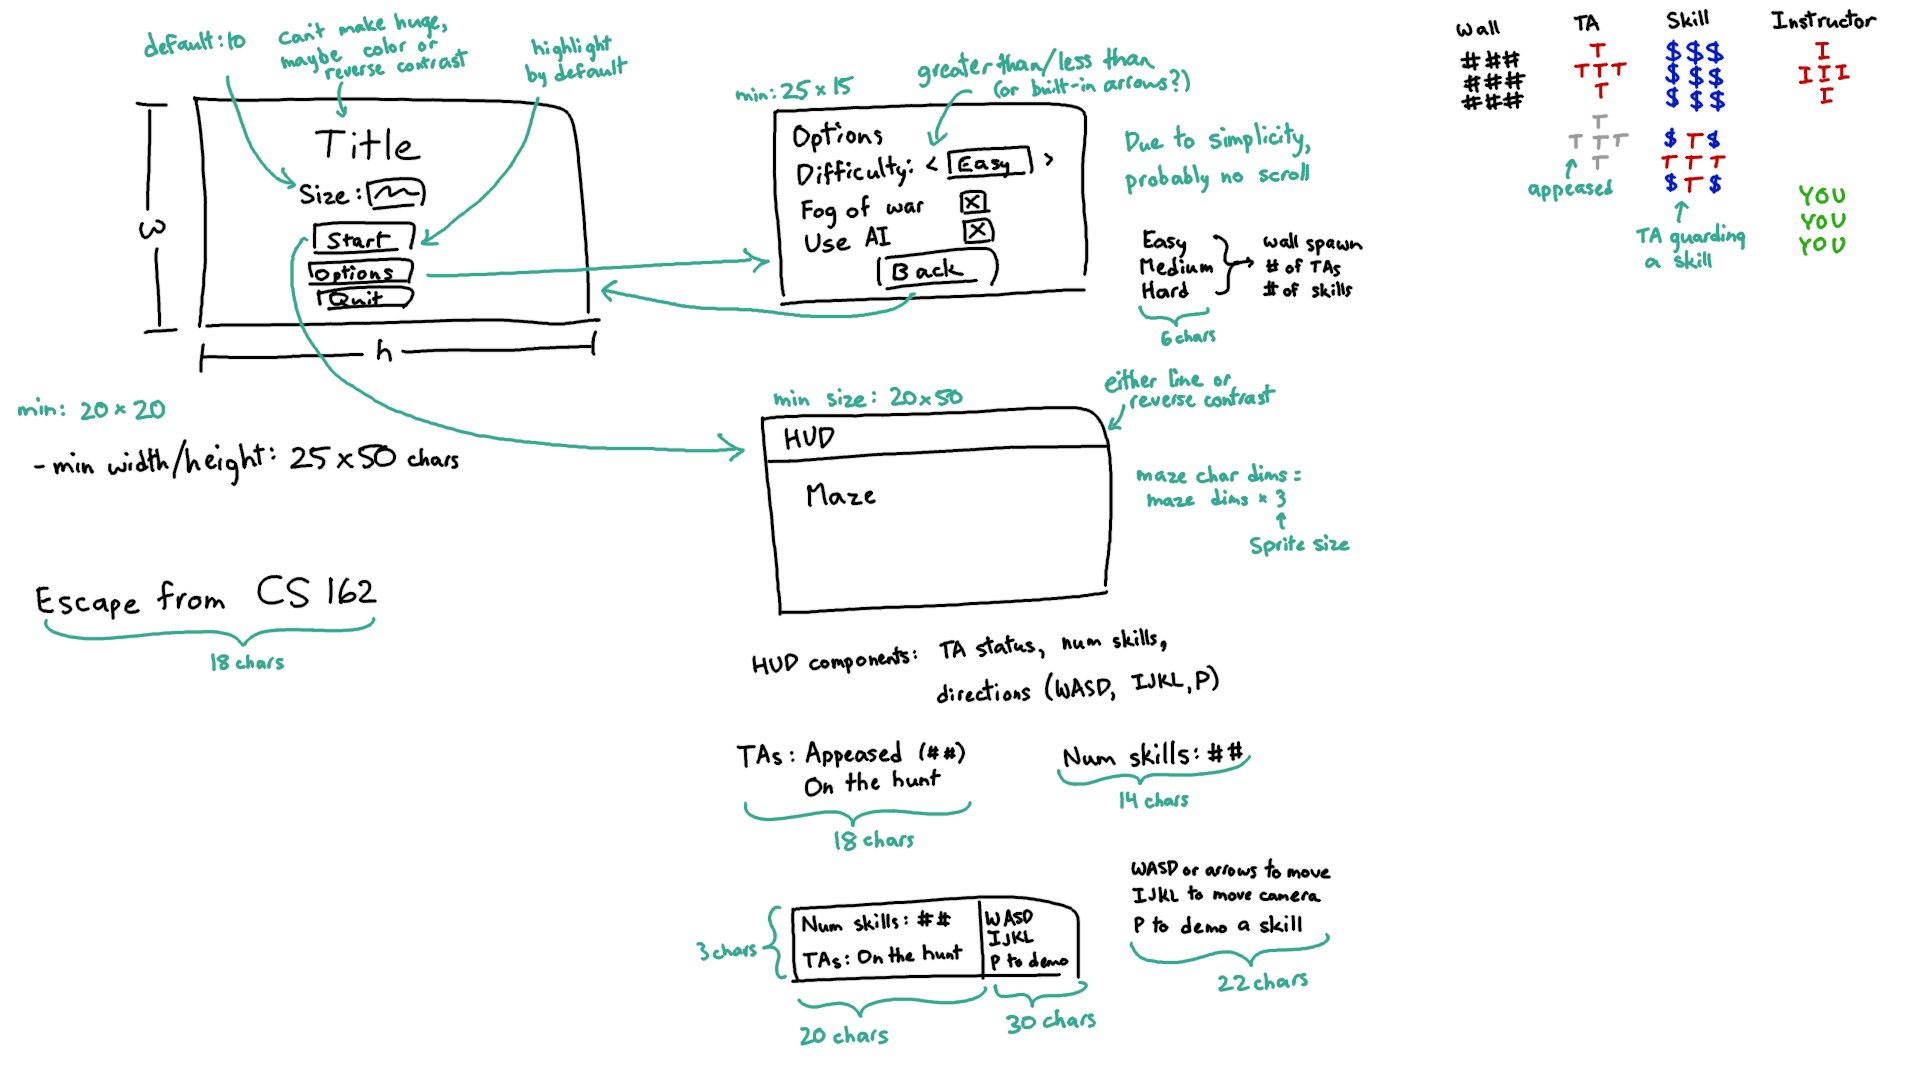 default:10
Can't make huge,
maybe color or
reverse contrast
highlight
by default
Title
Size:
Start
Options
Quit
w
h
min: 20 x 20
- min width/height: 25 x 50 chars
Escape from CS 162
18 chars
min: 25 x 15
greater than/less than
(or built-in arrows?)
Options
Difficulty: < Easy >
Fog of war x
Use AI x
Back
Due to simplicity,
probably no scroll
Easy
Medium
Hard
6 chars
wall spawn
# of TAs
# of skills
min size: 20x50
either line or
reverse contrast
HUD
Maze
maze char dims =
maze dims * 3
Sprite size
HUD components: TA status, num skills,
directions (WASD, IJKL, P)
TAs: Appeased (##)
On the hunt
18 chars
Num skills: ##
14 chars
3 chars
Num skills: ##
TAs: On the hunt
WASD
IJKL
P to demo
20 chars
30 chars
WASD or arrows to move
IJKL to move camera
P to demo a skill
22 chars
Wall
###
###
###
TA
T
TTT
T
T
TTT
T
appeased
Skill
$$$
$$$
$$$
$T$
TTT
$T$
TA guarding
a skill
Instructor
I
III
I
YOU
YOU
YOU